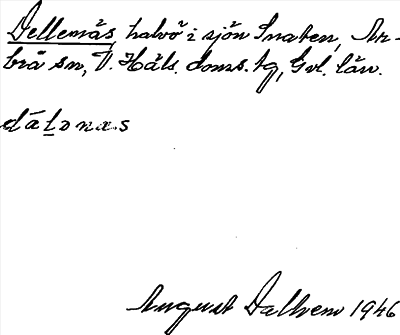 Dellenäs halvö i sjön Snaten, Ar-
brå sn, V. Häls. doms. tg, Gvl. län.
August Dalhem 1946